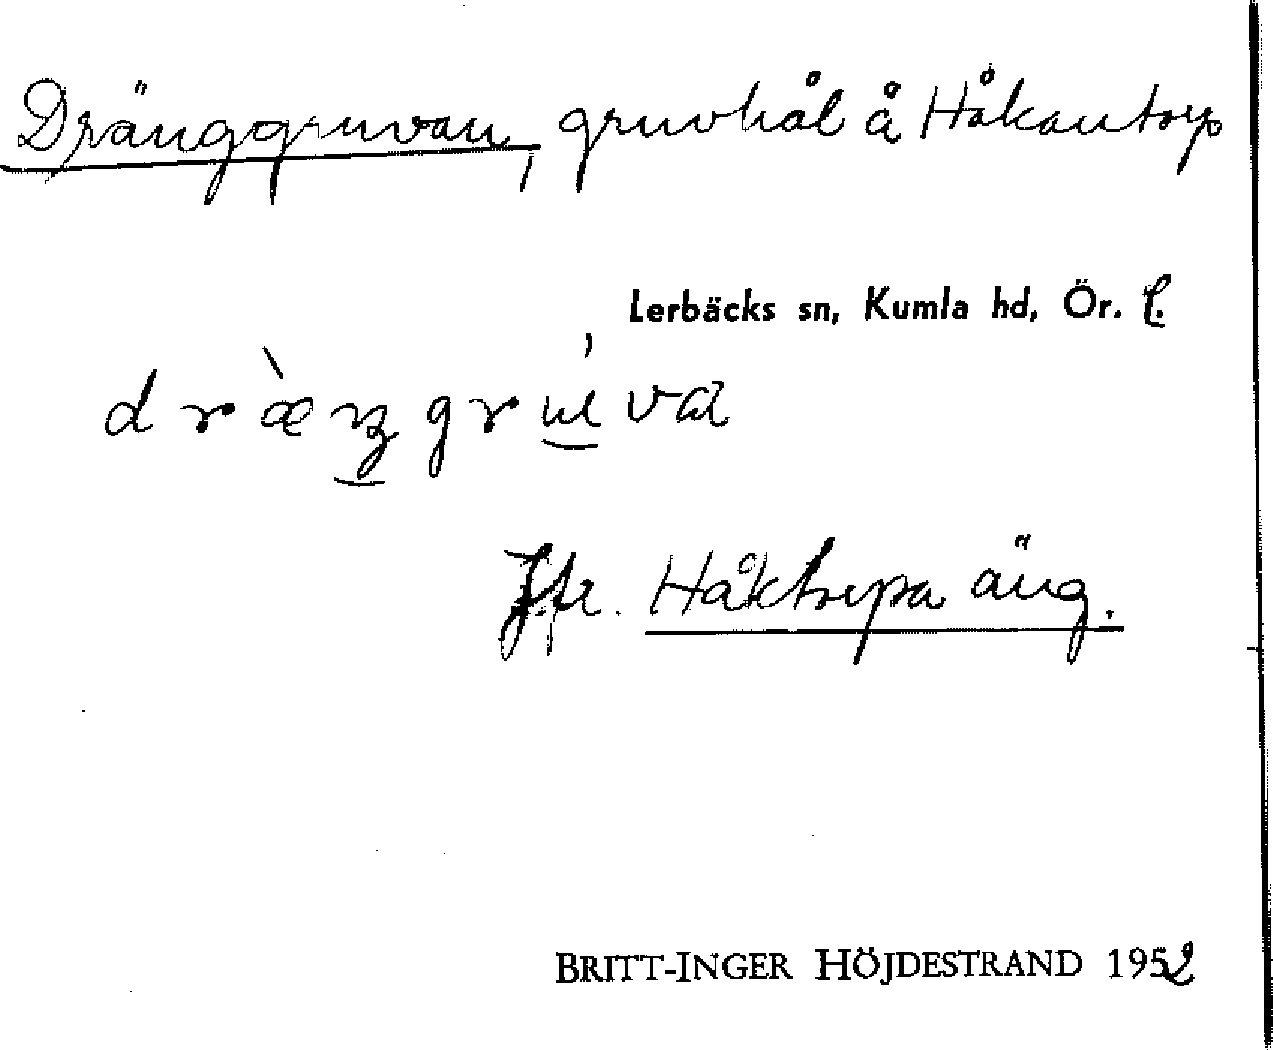 Dränggruvan, gruvhål å Håkantorp
Lerbäcks sn, Kumla hd, Ör. l.
dræ̀ŋgrúva
Jfr. Håktorpa äng.
BRITT-INGER HÖJDESTRAND 1952